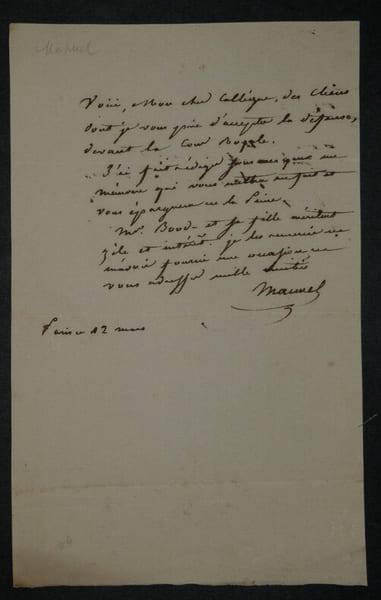 Manuel
Voici, Mon cher Collègue, des cliens
dont je vous prie d'accepter la défense,
devant la Cour Royale.
J'ai fait rédiger pour eux un
mémoire qui vous mettra au fait et
vous épargnera de la Peine.
Mr. et sa fille méritent
zèle et intérêt. je les remercie de
m'avoir fourni une occasion de
vous adresser mille amitiés
Manuel
Paris ce 12 mars